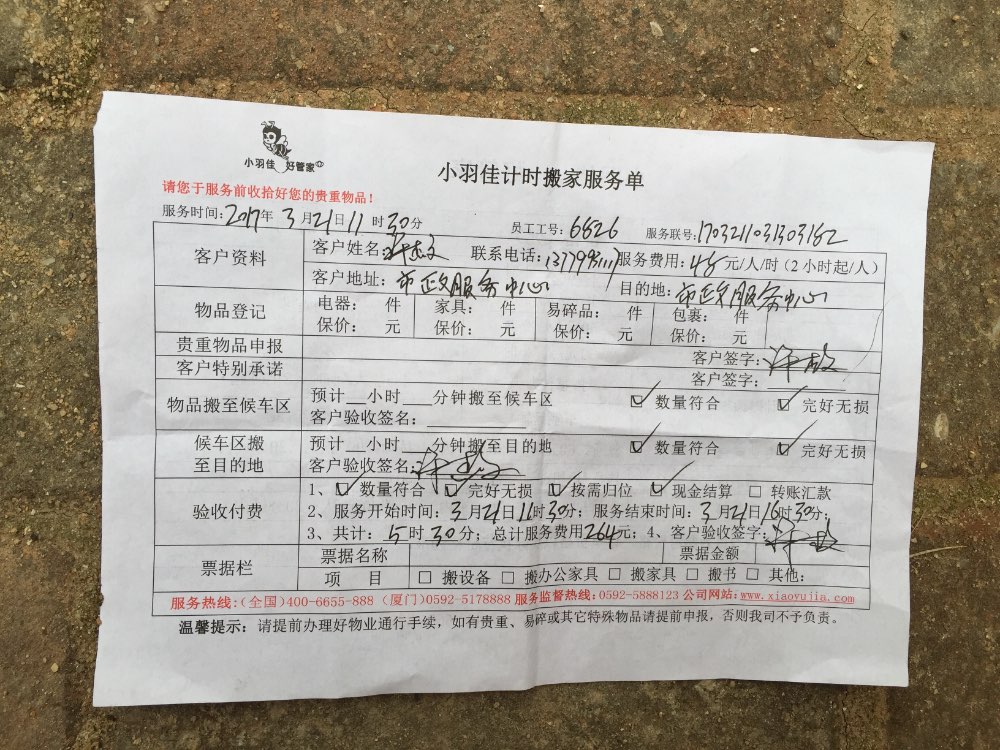 小羽佳 好管家
小羽佳计时搬家服务单
请您于服务前收拾好您的贵重物品！
服务时间：2017年3月21日11时30分 员工工号：6826 服务联号：1703211031303182
客户资料 客户姓名： 联系电话： 服务费用：48元/人/时（2小时起/人）
客户地址：市政服务中心 目的地：市政服务中心
物品登记 电器： 件 家具： 件 易碎品： 件 包裹： 件
保价： 元 保价： 元 保价： 元 保价： 元
贵重物品申报 客户签字：
客户特别承诺 客户签字：
物品搬至候车区 预计__小时___分钟搬至候车区 ☑ 数量符合 ☑ 完好无损
客户验收签名：
候车区搬至目的地 预计__小时___分钟搬至目的地 ☑ 数量符合 ☑ 完好无损
客户验收签名：
验收付费 1、☑ 数量符合 ☑ 完好无损 ☑ 按需归位 ☑ 现金结算 □ 转账汇款
2、服务开始时间：3月21日11时30分；服务结束时间：3月21日16时30分；
3、共计：5时30分；总计服务费用264元；4、客户验收签字：
票据栏 票据名称 票据金额
项 目 □ 搬设备 □ 搬办公家具 □ 搬家具 □ 搬书 □ 其他：
服务热线:(全国)400-6655-888 (厦门)0592-5178888 服务监督热线:0592-5888123 公司网站:www.xiaoyujia.com
温馨提示：请提前办理好物业通行手续，如有贵重、易碎或其它特殊物品请提前申报，否则我司不予负责。